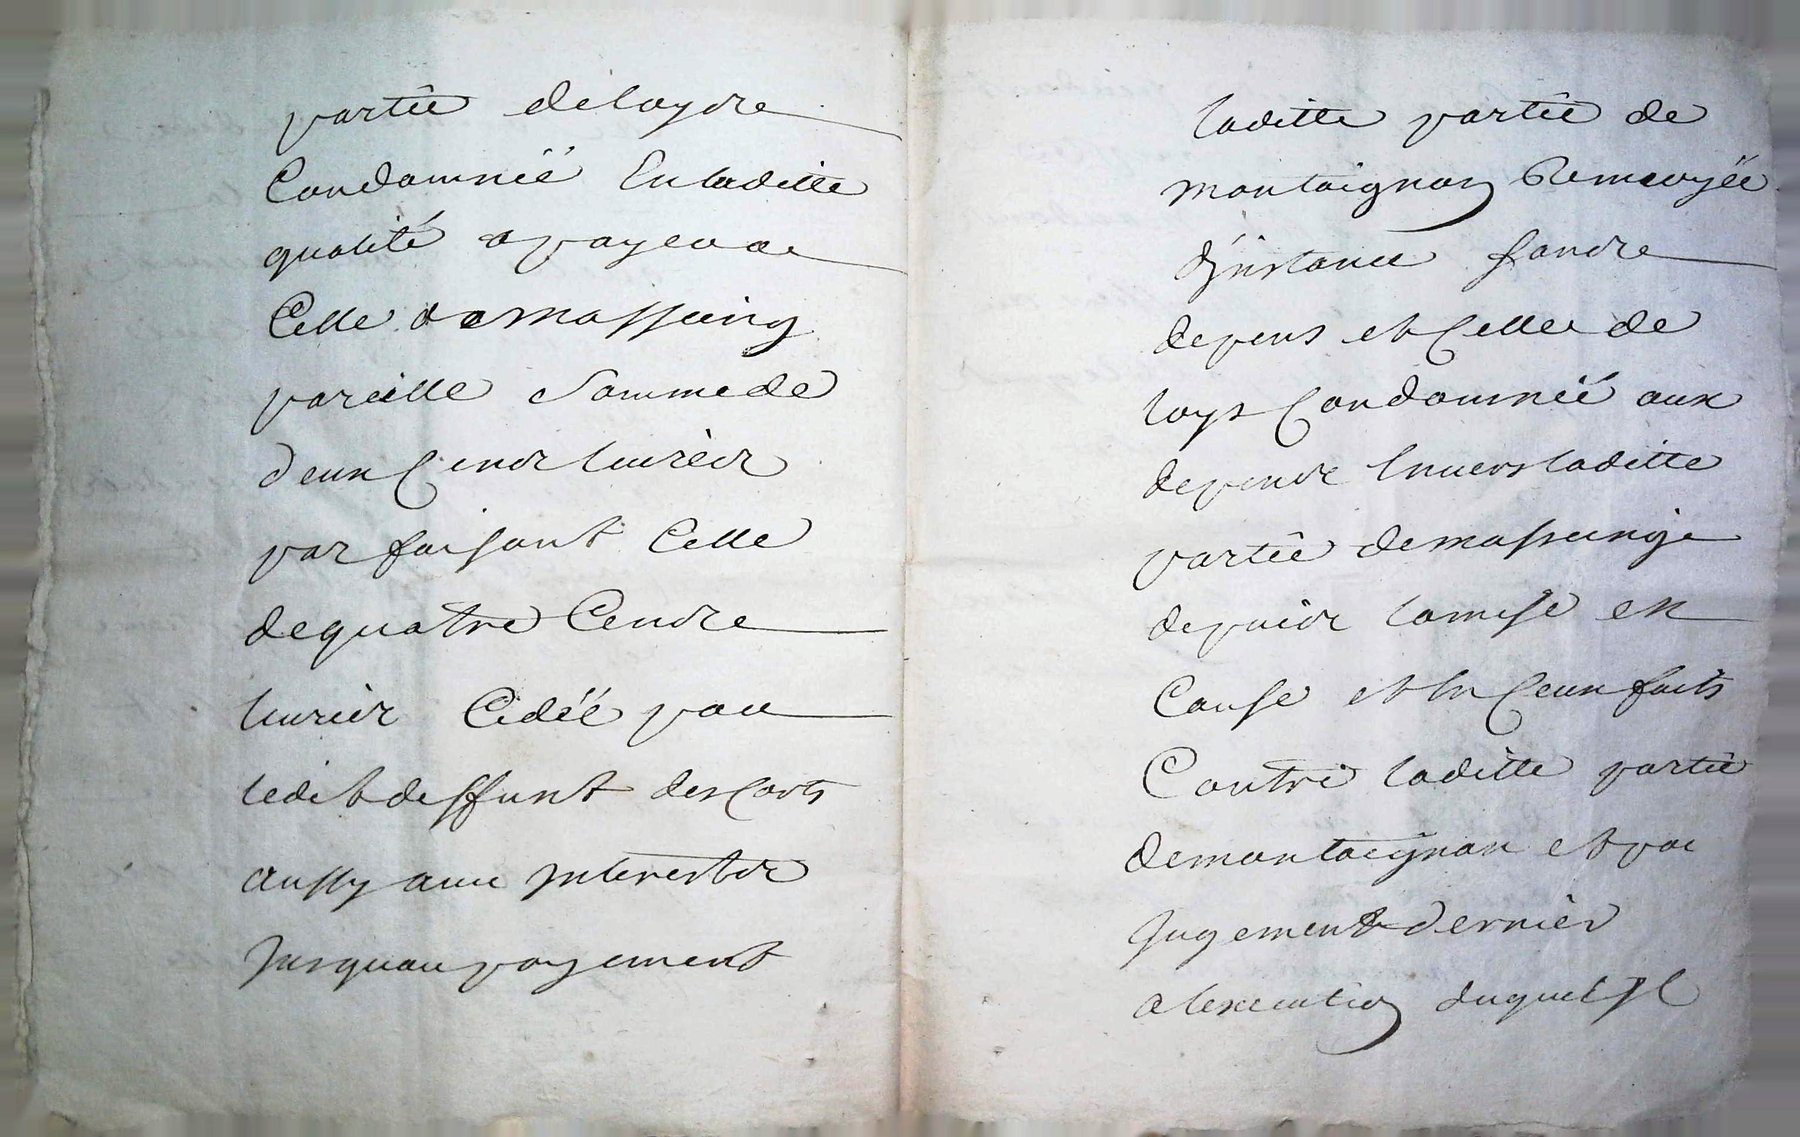 partie de loys
Condamnée En laditte
qualité a payer a
Celle de massuing
pareille Somme de
deux Cents livres
parfaisant Celle
de quatre Cents
livres Cedéé par
ledit deffunt descorts
aussy avec Interests
Jusquau payement
laditte partie de
montaignon Renvoyéé
d'instance sans
depens et Celle de
loys Condamnéé aux
depens Envers laditte
partie de massuing
depuis la mise en
Cause et En Ceux faits
Contre laditte partie
de montaignon et par
Jugement dernier
a lexecution duquel Il